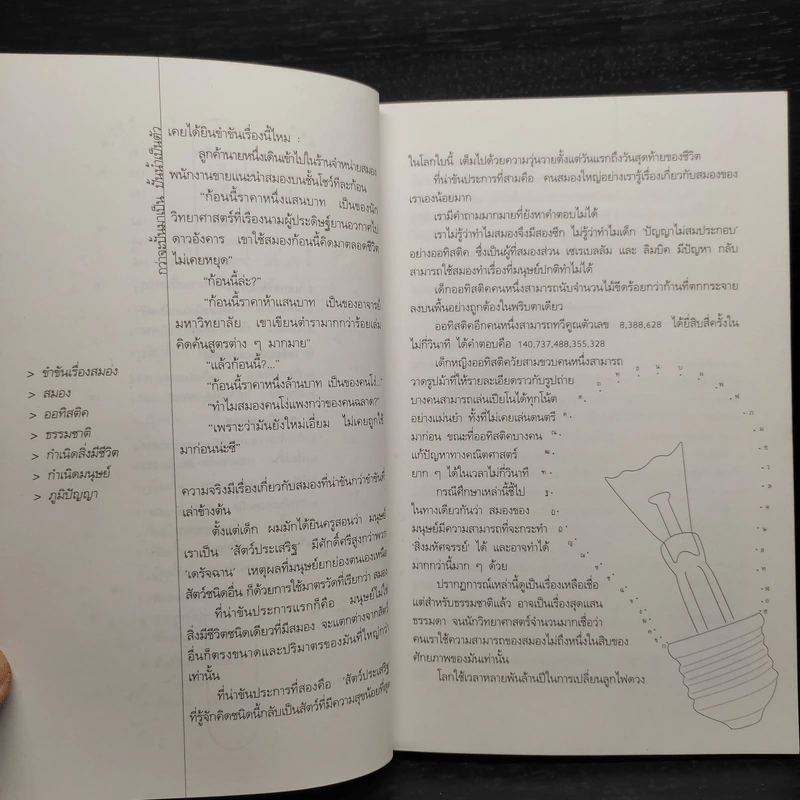 กว่าจะปั้นมาเป็น ปั้นน้ำเป็นตัว
> ขำขันเรื่องสมอง
> สมอง
> ออทิสติค
> ธรรมชาติ
> กำเนิดสิ่งมีชีวิต
> กำเนิดมนุษย์
> ภูมิปัญญา
เคยได้ยินขำขันเรื่องนี้ไหม :
ลูกค้านายหนึ่งเดินเข้าไปในร้านจำหน่ายสมอง
พนักงานขายแนะนำสมองบนชั้นโชว์ทีละก้อน
“ก้อนนี้ราคาหนึ่งแสนบาท เป็นของนัก
วิทยาศาสตร์ที่เรืองนามผู้ประดิษฐ์ยานอวกาศไป
ดาวอังคาร เขาใช้สมองก้อนนี้คิดมาตลอดชีวิต
ไม่เคยหยุด”
“ก้อนนี้ล่ะ?”
“ก้อนนี้ราคาห้าแสนบาท เป็นของอาจารย์
มหาวิทยาลัย เขาเขียนตำรามากกว่าร้อยเล่ม
คิดค้นสูตรต่าง ๆ มากมาย”
“แล้วก้อนนี้?...”
“ก้อนนี้ราคาหนึ่งล้านบาท เป็นของคนโง่..”
“ทำไมสมองคนโง่แพงกว่าของคนฉลาด?”
“เพราะว่ามันยังใหม่เอี่ยม ไม่เคยถูกใช้
มาก่อนน่ะซี”
ความจริงมีเรื่องเกี่ยวกับสมองที่น่าขันกว่าขำขันที่
เล่าข้างต้น
ตั้งแต่เด็ก ผมมักได้ยินครูสอนว่า มนุษย์
เราเป็น ‘สัตว์ประเสริฐ’ มีศักดิ์ศรีสูงกว่าพวก
‘เดรัจฉาน’ เหตุผลที่มนุษย์ยกย่องตนเองเหนือ
สัตว์ชนิดอื่น ก็ด้วยการใช้มาตรวัดที่เรียกว่า สมอง
ที่น่าขันประการแรกก็คือ มนุษย์ไม่ใช่
สิ่งมีชีวิตชนิดเดียวที่มีสมอง จะแตกต่างจากสัตว์
อื่นก็ตรงขนาดและปริมาตรของมันที่ใหญ่กว่า
เท่านั้น
ที่น่าขันประการที่สองคือ ‘สัตว์ประเสริฐ’
ที่รู้จักคิดชนิดนี้กลับเป็นสัตว์ที่มีความสุขน้อยที่สุด
ในโลกใบนี้ เต็มไปด้วยความวุ่นวายตั้งแต่วันแรกถึงวันสุดท้ายของชีวิต
ที่น่าขันประการที่สามคือ คนสมองใหญ่อย่างเรารู้เรื่องเกี่ยวกับสมองของ
เราเองน้อยมาก
เรามีคำถามมากมายที่ยังหาคำตอบไม่ได้
เราไม่รู้ว่าทำไมสมองจึงมีสองซีก ไม่รู้ว่าทำไมเด็ก ‘ปัญญาไม่สมประกอบ’
อย่างออทิสติค ซึ่งเป็นผู้ที่สมองส่วน เซเรเบลลัม และ ลิมบิค มีปัญหา กลับ
สามารถใช้สมองทำเรื่องที่มนุษย์ปกติทำไม่ได้
เด็กออทิสติคคนหนึ่งสามารถนับจำนวนไม้ขีดร้อยกว่าก้านที่ตกกระจาย
ลงบนพื้นอย่างถูกต้องในพริบตาเดียว
ออทิสติคอีกคนหนึ่งสามารถทวีคูณตัวเลข 8,388,628 ได้ยี่สิบสี่ครั้งใน
ไม่กี่วินาที ได้คำตอบคือ 140,737,488,355,328
เด็กหญิงออทิสติควัยสามขวบคนหนึ่งสามารถ
วาดรูปม้าที่ให้รายละเอียดราวกับรูปถ่าย
บางคนสามารถเล่นเปียโนได้ทุกโน้ต
อย่างแม่นยำ ทั้งที่ไม่เคยเล่นดนตรี
มาก่อน ขณะที่ออทิสติคบางคน
แก้ปัญหาทางคณิตศาสตร์
ยาก ๆ ได้ในเวลาไม่กี่วินาที
กรณีศึกษาเหล่านี้ชี้ไป
ในทางเดียวกันว่า สมองของ
มนุษย์มีความสามารถที่จะกระทำ
‘สิ่งมหัศจรรย์’ ได้ และอาจทำได้
มากกว่านี้มาก ๆ ด้วย
ปรากฏการณ์เหล่านี้ดูเป็นเรื่องเหลือเชื่อ
แต่สำหรับธรรมชาติแล้ว อาจเป็นเรื่องสุดแสน
ธรรมดา จนนักวิทยาศาสตร์จำนวนมากเชื่อว่า
คนเราใช้ความสามารถของสมองไม่ถึงหนึ่งในสิบของ
ศักยภาพของมันเท่านั้น
โลกใช้เวลาหลายพันล้านปีในการเปลี่ยนลูกไฟดวง